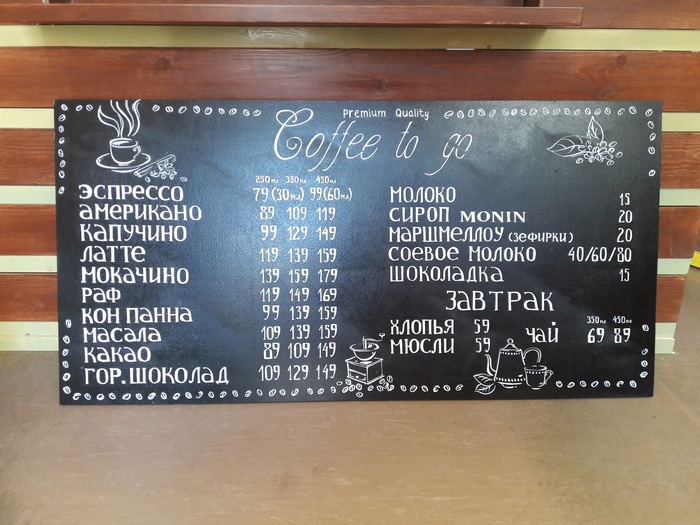 Premium Quality
Coffee to go
250 мл 350 мл 450 мл
ЭСПРЕССО 79 (30мл) 99 (60мл)
АМЕРИКАНО 89 109 119
КАПУЧИНО 99 129 149
ЛАТТЕ 119 139 159
МОКАЧИНО 139 159 179
РАФ 119 149 169
КОН ПАННА 99 139 159
МАСАЛА 109 139 159
КАКАО 89 109 149
ГОР. ШОКОЛАД 109 129 149
МОЛОКО 15
СИРОП MONIN 20
МАРШМЕЛЛОУ (ЗЕФИРКИ) 20
СОЕВОЕ МОЛОКО 40/60/80
ШОКОЛАДКА 15
ЗАВТРАК
ХЛОПЬЯ 59
МЮСЛИ 59
350 мл 450 мл
ЧАЙ 69 89